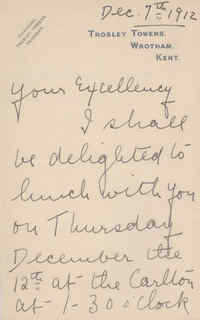 Dec. 7th 1912
TROSLEY TOWERS.
WROTHAM.
KENT.
Your Excellency
I shall
be delighted to
lunch with you
on Thursday
December the
12th at the Carlton
at 1-30 o'clock